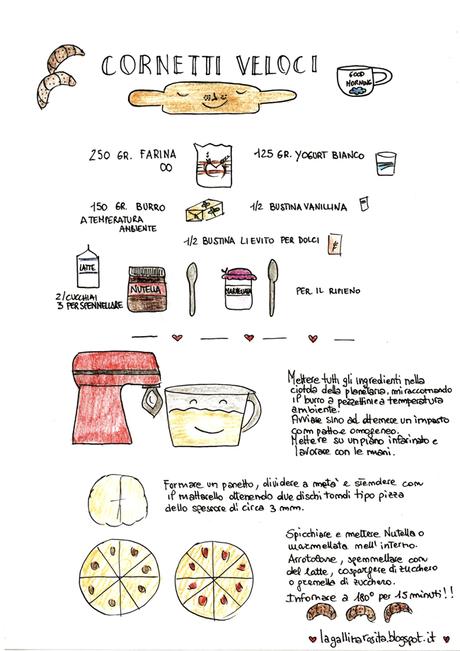 CORNETTI VELOCI
GOOD
MORNING
250 GR. FARINA
00
125 GR. YOGURT BIANCO
150 GR. BURRO
A TEMPERATURA
AMBIENTE
1/2 BUSTINA VANILLINA
1/2 BUSTINA LIEVITO PER DOLCI
LATTE
NUTELLA
MARMELLATA
PER IL RIPIENO
2/ CUCCHIAI
3 PER SPENNELLARE
Mettere tutti gli ingredienti nella
ciotola della planetaria, mi raccomando
il burro a pezzettini e a temperatura
ambiente.
Avviare sino ad ottenere un impasto
compatto e omogeneo.
Mettere su un piano infarinato e
lavorare con le mani.
Formare un panetto, dividere a metà e stendere con
il mattarello ottenendo due dischi tondi tipo pizza
dello spessore di circa 3 mm.
Spicchiare e mettere Nutella o
marmellata nell'interno.
Arrotolare, spennellare con
del latte, cospargere di zucchero
o granella di zucchero.
Infornare a 180° per 15 minuti!!
lagallinarosita.blogspot.it